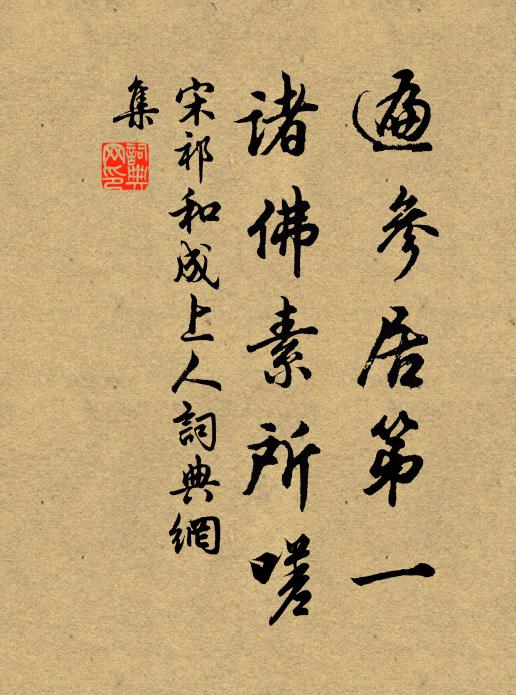 遍參居第一
諸佛素所嗟
宋祁和成上人詞典網
集
詞典網印